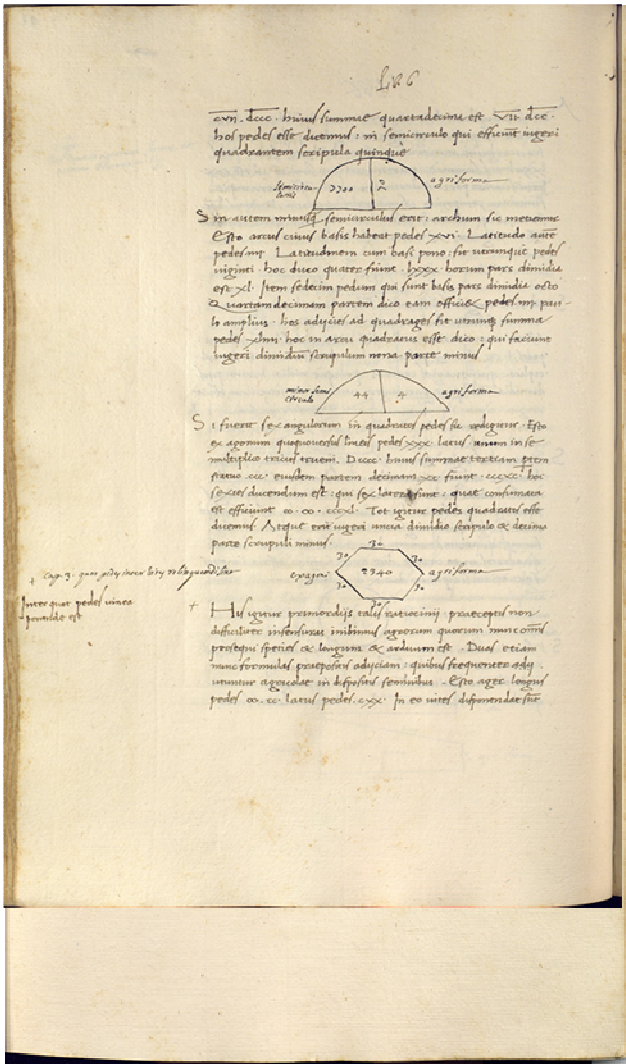 Lib 6
cvii. dccc. huius summae quartadecima est vii dcc.
hos pedes esse dicemus: in semicirculo qui efficiunt iugeri
quadrantem scripula quinque
2700
agri forma
Sin autem minusq semicirculus erit: archum sic metiemur
Esto arcus cuius basis habeat pedes xvi. Latitudo aute
pedes iiii. Latitudinem cum basi pono: fit utrunque pedes
viginti. hoc duco quater fiunt. lxxx. horum pars dimidia
est xl. Item sedecim pedum qui sunt basis pars dimidia octo
Quartamdecimam partem dico eam efficit pedes iiii pau-
lo amplius. hos adijcies ad quadrages fit utriusq summa
pedes xliiii hoc in arcu quadratus esse dico: qui faciunt
iugeri dimidium scrupulum nona parte minus
44 4
agri forma
Si fuerit sex angulorum in quadratos pedes sic redigitur. Esto
ex agonum quoquoversus lineis pedes xxx. latus unum in se
multiplico tricies triceni. Dcccc. huius summae tertiam partem
statuo. ccc. eiusdem partem decimam xc fiunt. cccxc. hoc
sexies ducendum est: qui sex latera sunt: quae consumata
est efficiunt ∞. ∞. cccxl. Tot igitur pedes quadratos esse
dicemus Aeque erit iugeri uncia dimidio scripulo & decima
parte scrupuli minus.
30
30 30
exagoni 2340 agri forma
30 30
+ Cap. 3.
Inter quot pedes vinea
+ His igitur primordijs talis ratiocinii praeceptis non
difficiliter insensuras inibimus agrorum quorum nunc omnes
prosequi species & longum & arduum est. Duas etiam
nunc formulas praepositis adijciam: quibus frequenter
utuntur agricolae in dispositis seminibus. Esto ager longus
pedes ∞. cc. latus pedes. cxx. In eo vites disponendae sunt